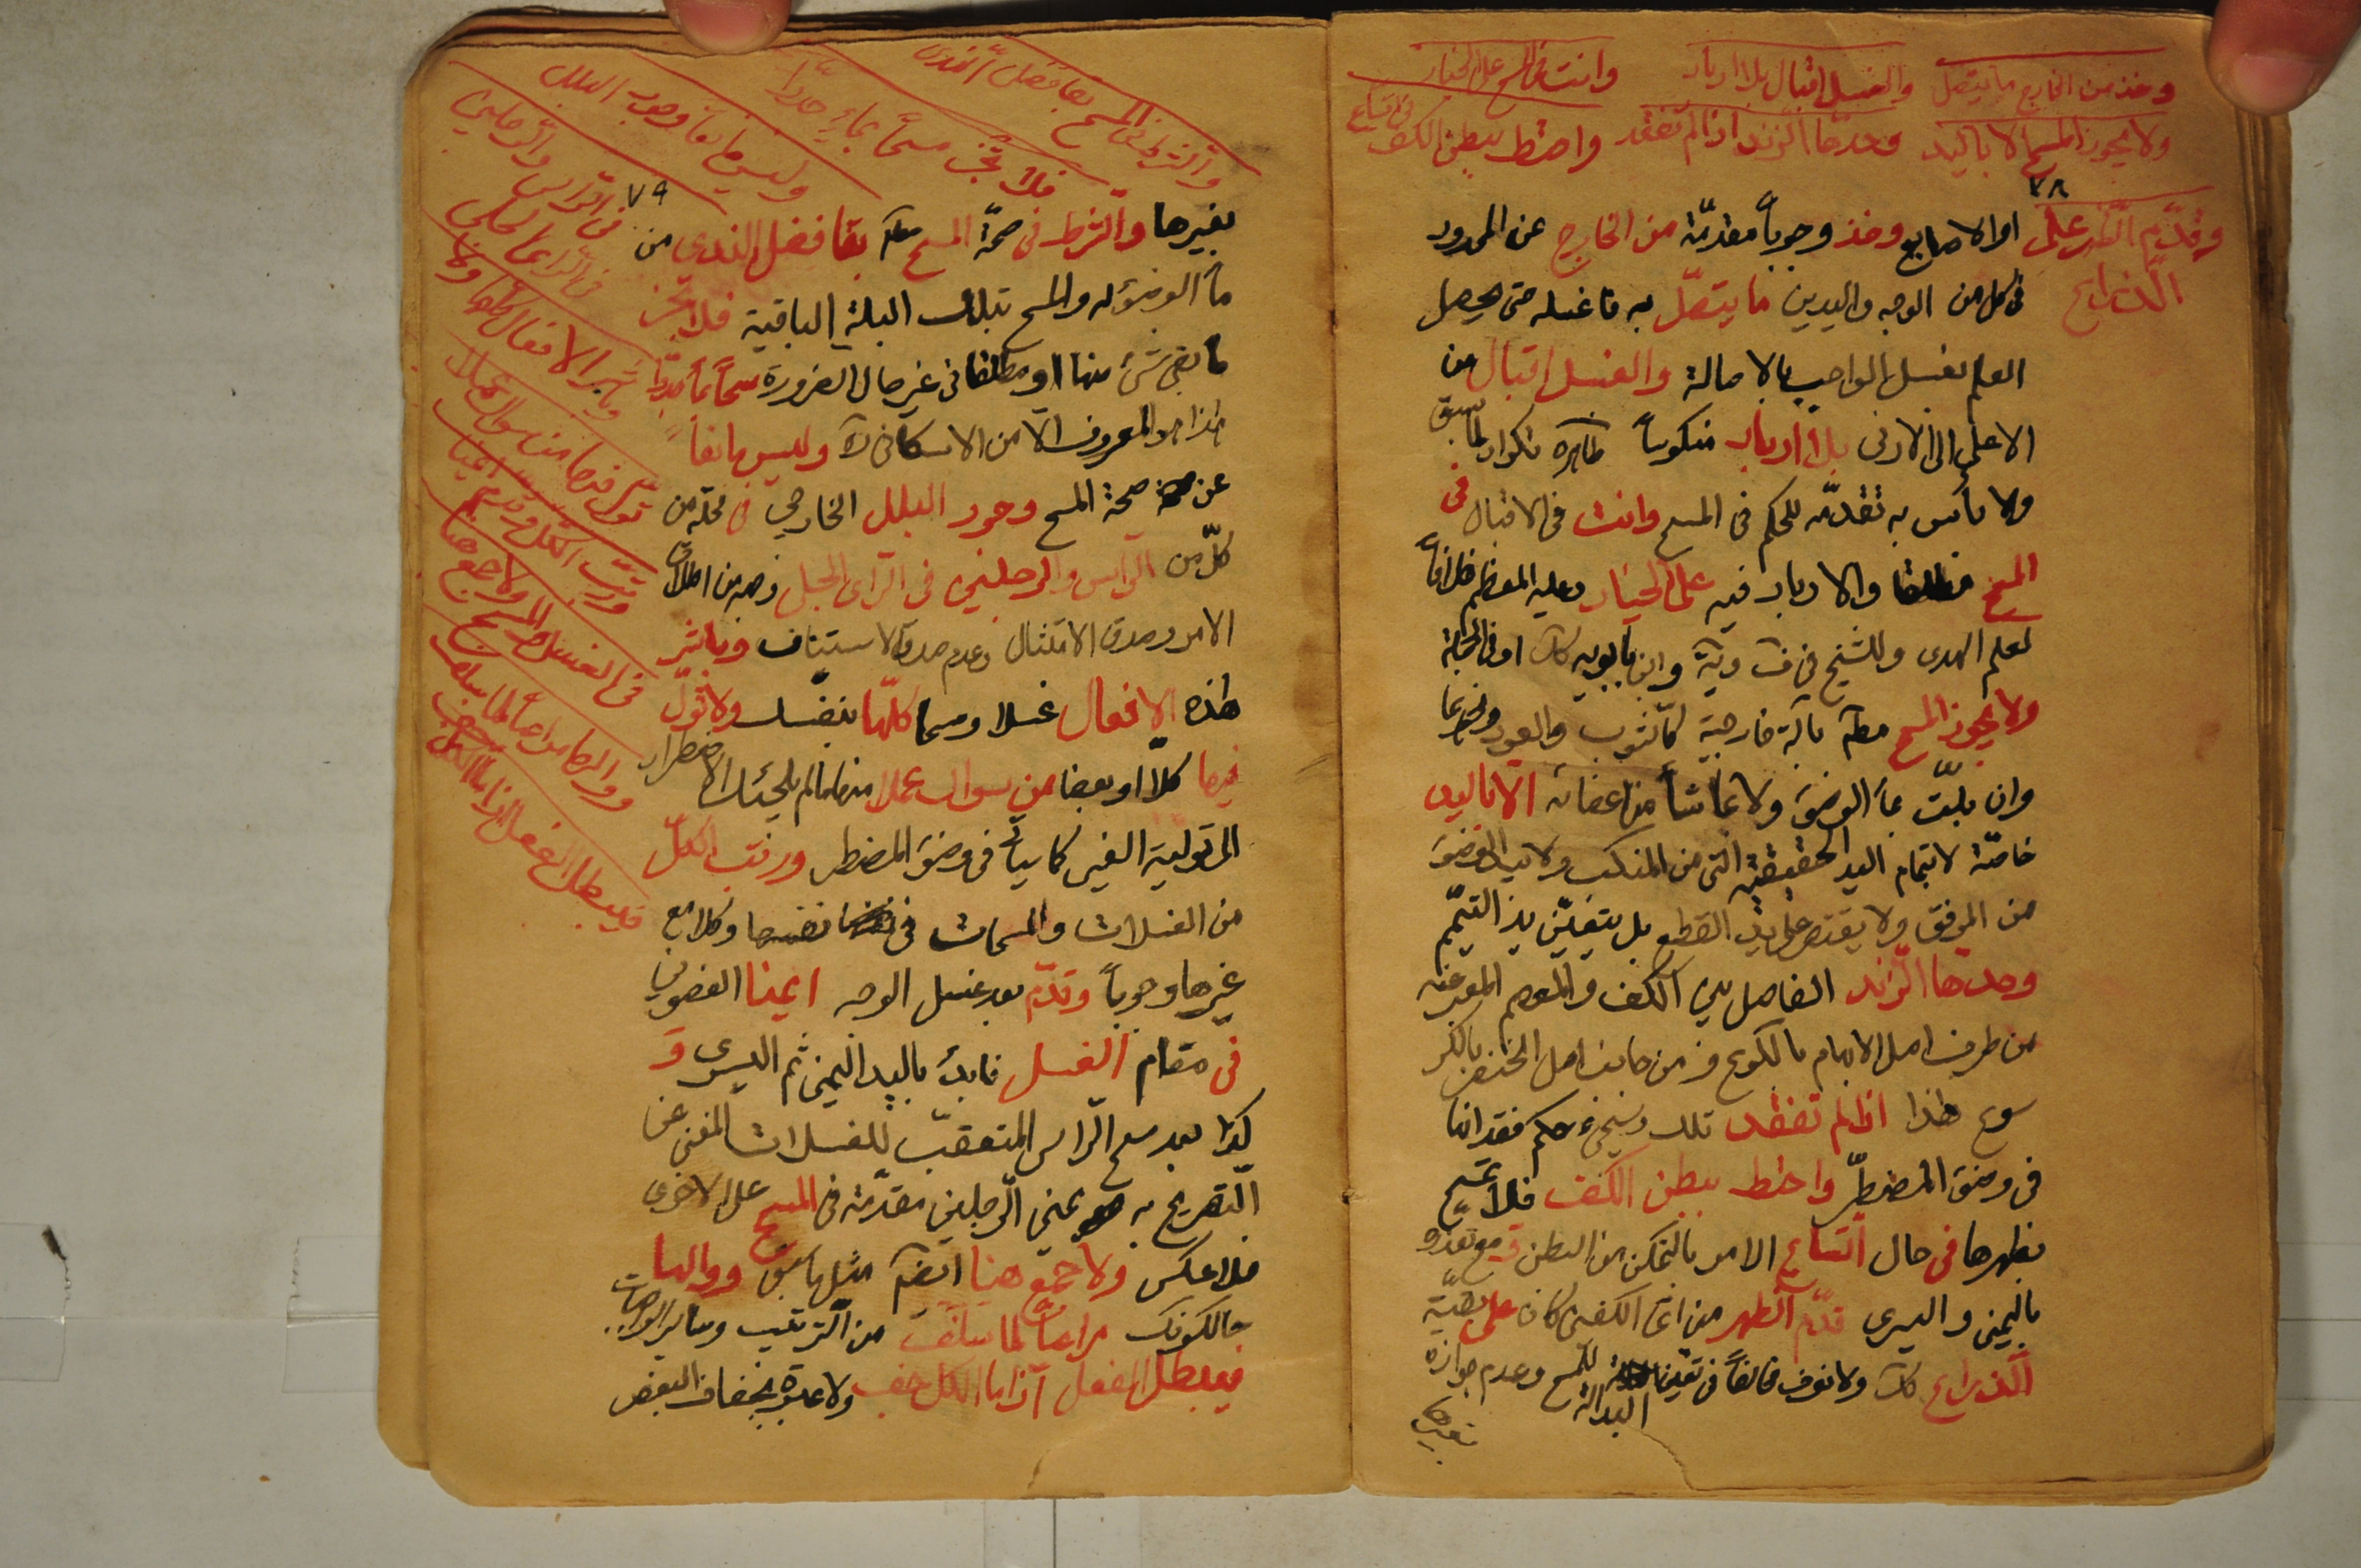 وخذ من الخارج ما يتصل والغسل اقبال بلا ادبار وانت في المسح على الخيار
ولا يجوز المسح الا باليد وحدها الزند اذا لم تفتقد واحتط ببطن الكف في اتساع
وقدم الظهر على
الذراع
٧٨
او الاصابع وخذ وجوباً مقدمة من الخارج عن المحدود
في كل من الوجه واليدين ما يتصل به فاغسله حتى يحصل
العلم بغسل الواجب بالاصالة والغسل اقبال من
الاعلى الى الادنى بلا ادبار منكوساً ظاهره تكرار لما سبق
ولا بأس به تقدمه للحكم في المسح وانت في الاقبال في
المسح مطلقا والادبار فيه على الخيار وعليه المعظم خلافاً
لعلم الهدى وللشيخ في وابن بابويه او في الجملة
ولا يجوز المسح بآلة خارجية كالثوب والعود ونحوهما
وان بلت بماء الوضوء ولا بما شاء من اعضائه الا باليد
خاصة لا بتمام اليد الحقيقية التي من المنكب ولا بيد الوضوء
من المرفق ولا يقتصر على يد القطع بل يتعين يد التيمم
وحدها الزند الفاصل بين الكف والمعصم المعبر عنه
من طرف اصل الابهام بالكوع ومن جانب اصل الخنصر بالكر
سوع هذا اذا لم تفتقد تلك وسيجيء حكم فقدانها
في وضوء المضطر واحتط ببطن الكف فلا تمسح
بظهرها في حال اتساع الامر بالتمكن من البطن ومع تعذره
باليمنى واليسرى قدم الظهر من اي الكفين كان على بقية
الذراع ولا نعرف مخالفاً في تعين اليد آلة للمسح وعدم جوازه
بغيرها
والشرط في المسح بقا فضل الندى
فلا تجز مسحاً بماء جدداً
وليس مانعاً وجود البلل
في الرأس والرجلين
في الرأي الجلي
وباشر الافعال كلها ولا
تول فيها من سواك عملا
ورتب الكل وقدم ايمنا
في الغسل والمسح ولا جمع هنا
ووالها مراعياً لما سلف
فيبطل الفعل اذا ما الكل جف
٧٩
بغيرها والشرط في صحة المسح بقا فضل الندى من
ماء الوضوء له والمسح بتلك البلة الباقية فلا تجز
ما بقي شيء منها او مطلقا في غير حال الضرورة مسحاً بماء جدداً
هذا هو المعروف الا من الاسكافي وليس مانعاً
عن صحة المسح وجود البلل الخارجي في محله من
كل من الرأس والرجلين في الرأي الجلي وجهه من اطلاق
الامر وصدق الامتثال وعدم صدق الاستيناف وباشر
هذه الافعال غسلا ومسحا كلها بنفسك ولا تول
فيها كلا او بعضا من سواك عملا منها ما لم يلجئك الاضطرار
الى تولية الغير كما سيأتي في وضوء المضطر ورتب الكل
من الغسلات والمسحات في نفسها وكلا مع
غيرها وجوباً وقدم بعد غسل الوجه ايمنا العضوين
في مقام الغسل فابدء باليد اليمنى ثم اليسرى و
كذا بعد مسح الرأس المتعقب للغسلات المغني عن
التصريح به يمنى الرجلين مقدمة في المسح على الاخرى
فلا عكس ولا جمع هنا ايضا مثلما سبق ووالها
حالكونك مراعياً لما سلف من الترتيب وساير الواجبات
فيبطل الفعل اذا ما الكل جف ولا عبرة بجفاف البعض